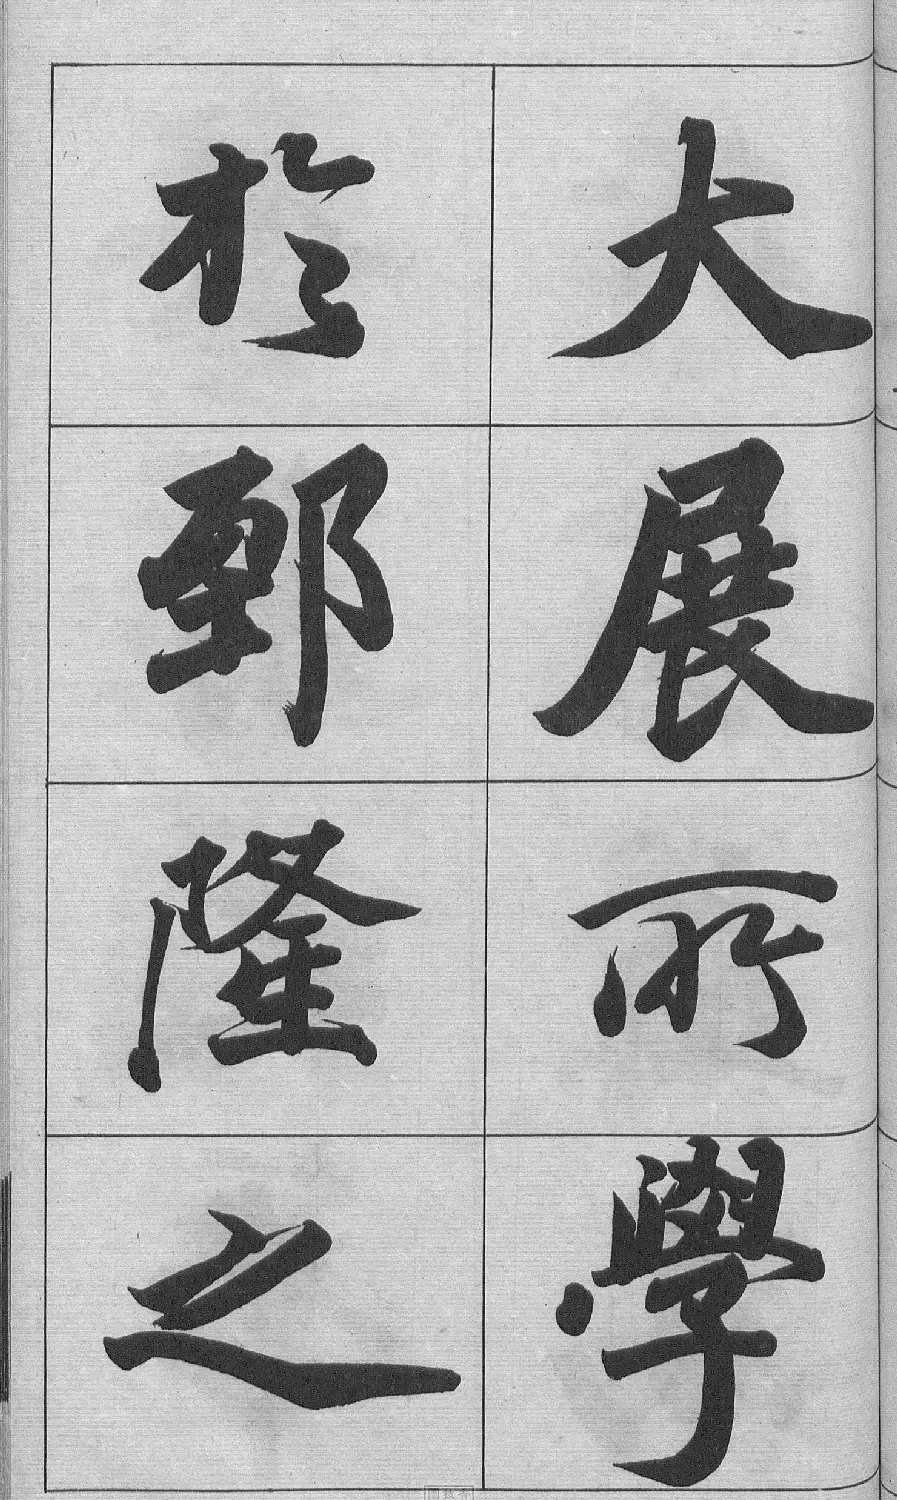 大展所學
於鄄隆之